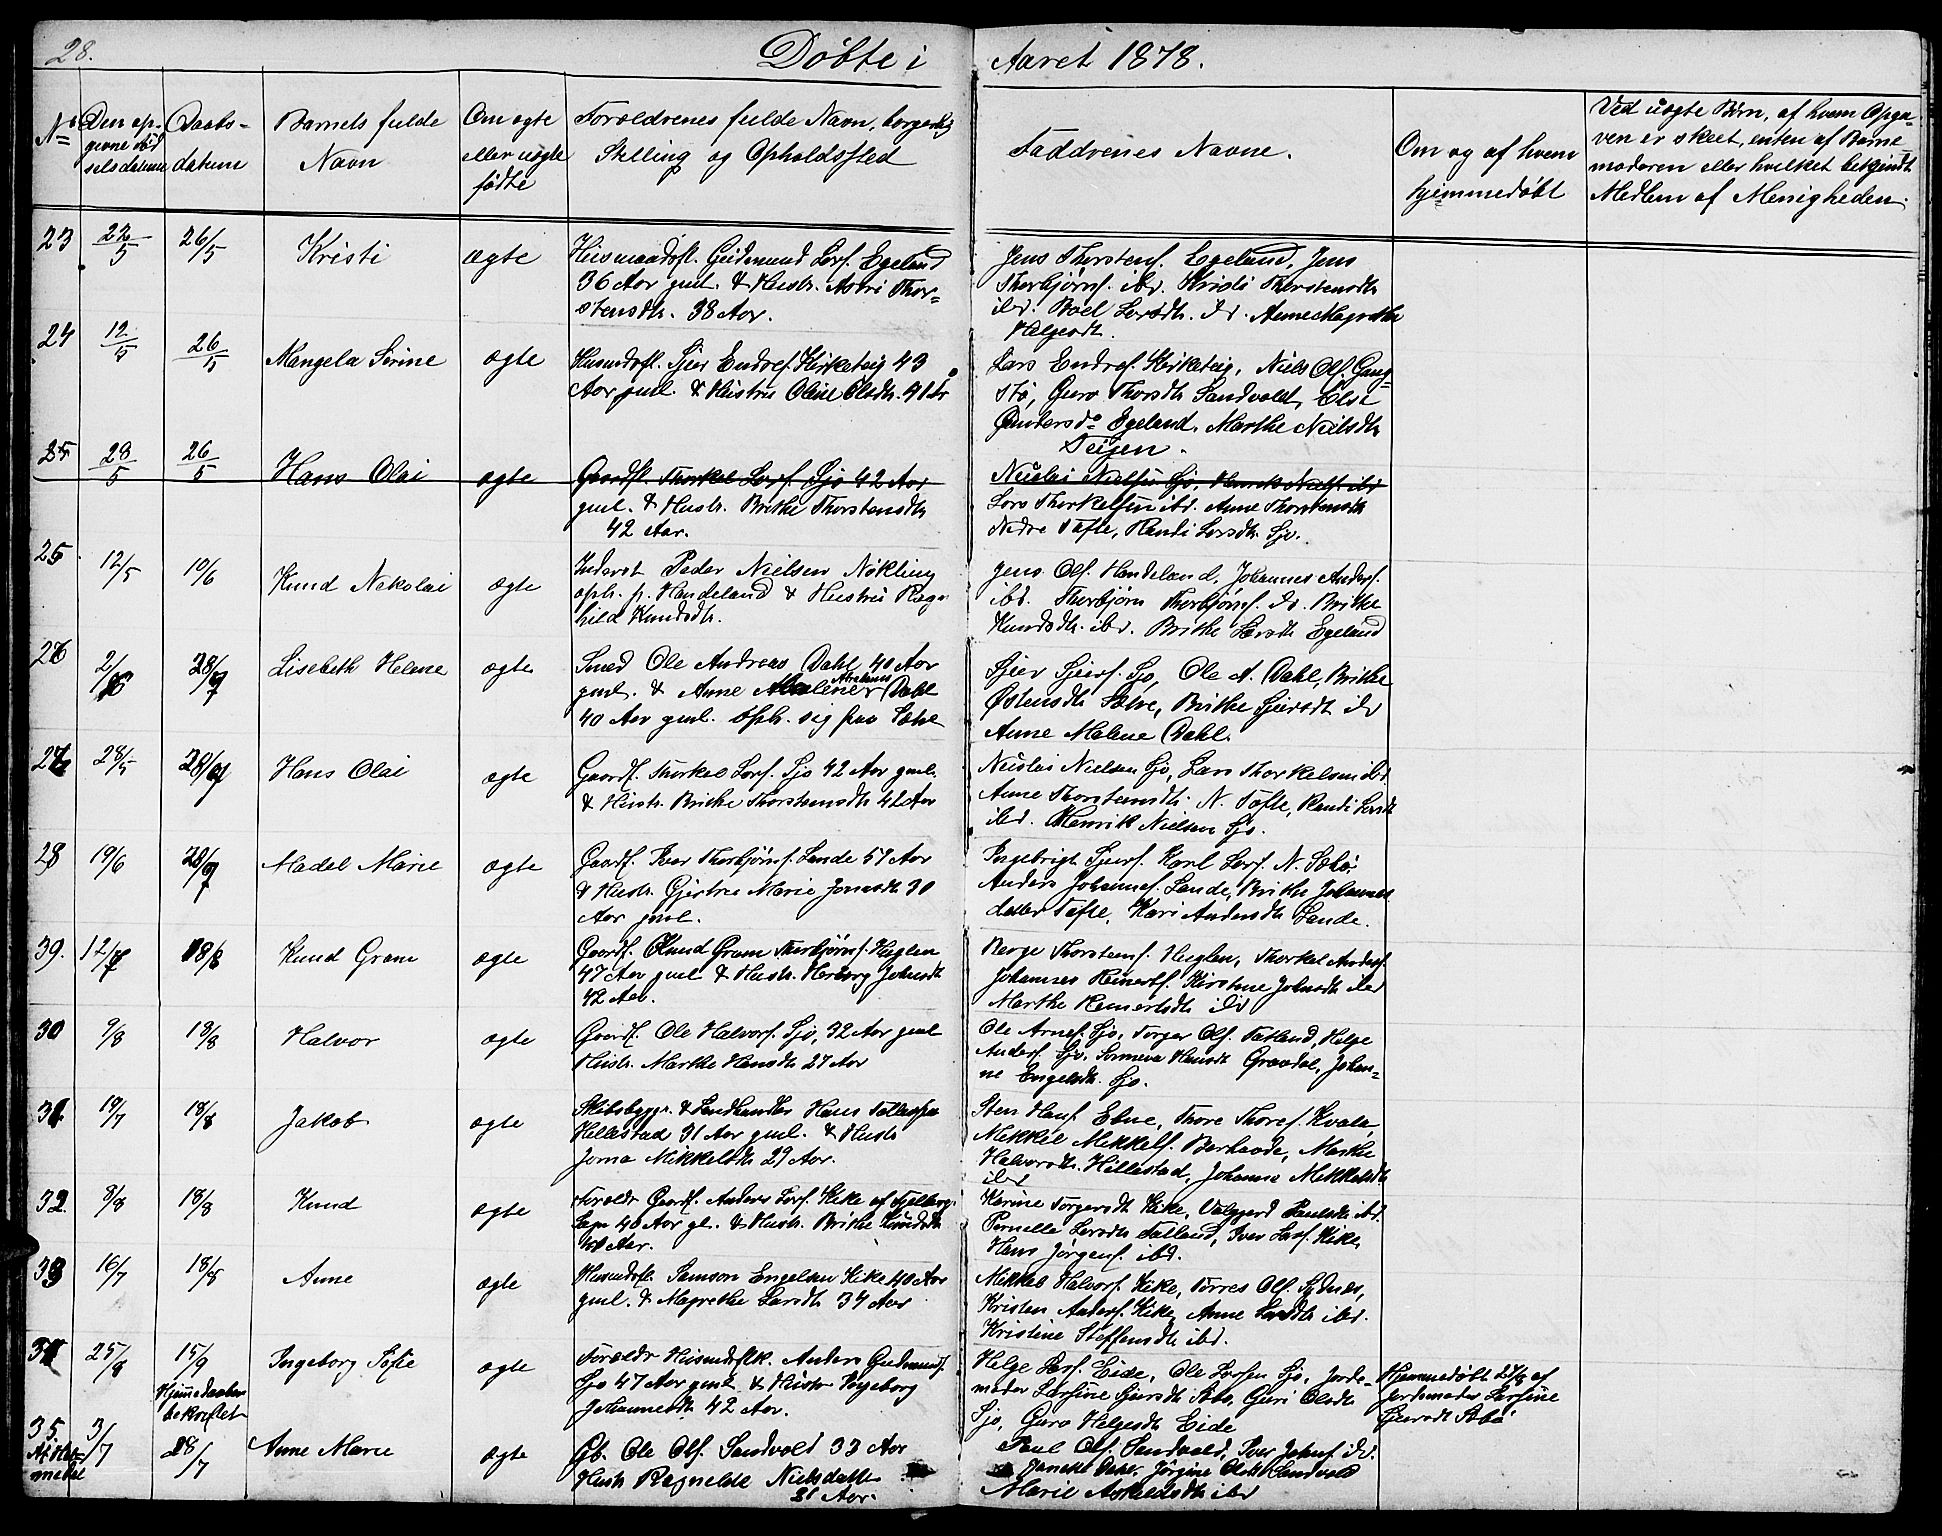 28.
Døbte i Aaret 1878.
No
Den op-
givne Fød
selsdatum
Daabs-
datum
Barnets fulde
Navn
Om ægte
eller uægte
fødte
Forældrenes fulde Navn, borgerlig
Stilling og Opholdssted
Faddrenes Navne.
Om og af hvem
hjemmedøbt
Ved uægte Børn, af hvem Opga-
ven er skeet, enten af Barne-
moderen eller hvilket bekjendt
Medlem af Menigheden.
23 22/5 26/5 Kristi ægte
Husmandsfl. Gudmund Larsf. Egeland
36 Aar gml. & Hustr. Astri Thor-
stensdtr. 38 Aar.
Jens Thorstens. Egeland, Jens
Thorbjørns. ibd. Kristi Thorstensdtr
ibd. Boel Larsdtr. ibd. Anne Magrethe
Valgersdt.
24 12/5 26/5 Mangela Serine ægte
Husmdsfl. Sjur Endres. Kirketeig 43
Aar gml. & Hustru Oline Olsdtr. 41 Ar
Lars Endres. Kirketeig, Niels Ols. Gang-
stø, Guro Thorsdtr Sandvold, Else
Gundersdr Egeland, Marthe Nielsdtr
Teigen.
25 28/5 26/5 Hans Olai ægte
Gaardfl. Thorkel Larsf. Sjo 42 Aar
gml. & Hustr. Brithe Thorstensdtr
42 Aar.
Nicolai Nielsen Sjo, Henrik Nielsf ibd
Lars Thorkelsen ibd. Anne Thorstensdtr
Nedre Tofte, Randi Larsdtr. Sjo.
25 12/5 10/6 Knud Nekolai ægte
Inderst Peder Nielsen Nøkling
oph. p. Handeland & Hustru Ragn
hild Knudsdtr.
Jens Ols. Handeland, Johannes Anders.
ibd. Thorbjørn Thorbjørns. ibd. Brithe
Knudsdtr. ibd. Brithe Larsdtr Egeland
26 2/6 28/7 Lisebeth Helene ægte
Smed Ole Andreas Dahl 40 Aar
gml. & Anne Malene Dahl
40 Aar gml. oph. sig paa Sætre
Sjur Sjurs. Sjo, Ole A. Dahl, Brithe
Østensdtr Sætre, Brithe Sjursdt ibd
Anne Malene Dahl.
27 28/5 28/7 Hans Olai ægte
Gaardf. Thorkel Larsf. Sjo 42 Aar gml.
& Hustr. Brithe Thorstensdtr 42 Aar
Nicolai Nielsen Sjo, Lars Thorkelsen ibd
Anne Thorstensdtr. N. Tofte, Randi Larsdtr
ibd. Henrik Nielsen Sjo.
28 19/6 28/7 Madel Marie ægte
Gaardf. Iver Thorbjørns. Lande 57 Aar
& Hustr. Gjertrue Marie Jonasdtr 30
Aar gml.
Ingebrigt Sjurs. Karl Lars. N. Sæbø,
Anders Johannes. Lande, Brithe Johannes
datter Tofte, Kari Andersdtr Lande.
39. 12/7 18/8 Knud Gram ægte
Gaardf. Knud Gram Thorbjørns. Huglen
47 Aar gml & Hustr. Herborg Johnsdtr
42 Aar.
Berge Thorstens. Huglen, Thorkel Anders.
Johannes Reinerts. Kirstine Johnsdtr ibd
Marthe Reinertsdtr ibd
30 9/8 18/8 Halvor ægte
Gaardf. Ole Halvors. Sjo, 32 Aar gml
Hustr. Marthe Hansdtr 27 Aar
Ole Arnes. Sjo, Torger Ols. Tatland, Helge
Anders. Sjo, Sonneva Hansdt Gravdal, Johan-
ne Engelsdtr. Sjo.
31 19/7 18/8 Jakob ægte
Skibsbyggr. & Landhandler Hans
Hellestad 31 Aar gml. & Hustr
Jorna Mikkelsdtr 29 Aar.
Sten Hans. Ebne, Thore Thores. Kvale,
Mekkel Mekkels. Borhaade, Marthe
Halvorsdtr. Hillestad, Johanna Mekkelsdtr
ibd
32 8/8 18/8 Knud ægte
Forældr Gaardf. Anders Lars. Kike af Fjelberg
40 Aar gl. & Hustr. Brithe Knudsdtr
40 Aar.
Karine Torgersdt Kike, Valgjerd Paulsdtr ibd.
Pernelle Larsdtr Tatland, Iver Lars. Kike,
Hans Jørgens. ibd.
33 16/7 18/8 Anne ægte
Husmdsfl. Samson Engelsen Kike 40 Aar
gml. & Magrethe Larsdtr 34 Aar
Mikkel Halvors. Kike, Torres Ols. Sydnes,
Kristen Anders. Kike, Anne Larsdtr ibd.
Kristine Steffensdtr ibd.
34 25/8 15/9 Ingeborg Sofie ægte
Hjemedaaben
bekræftet
Forældr Husmdsflk. Anders Gudmunds.
Sjo 47 Aar gml & Hustr Ingeborg
Johannesdtr 42 Aar.
Helge Lars. Eide, Ole Larsen Sjo, Jorde-
moder Larsine Sjursdt Sæbø, Guri Olsdtr
Sjo, Guro Helgesdt Eide
Hjemmedøbt 27/8 af
Jordemoder Larsine
Sjursdt Sæbø
35 3/7 28/7 Anne Marie ægte
Gb. Ole Ols. Sandvold 33 Aar
Hustr Ragnelde Nielsdatter
31 Aar.
Paul Ols. Sandvold, Iver Johns. ibd.
Jørgine Olsdtr Sandvold
Marie Askeldsdtr ibd